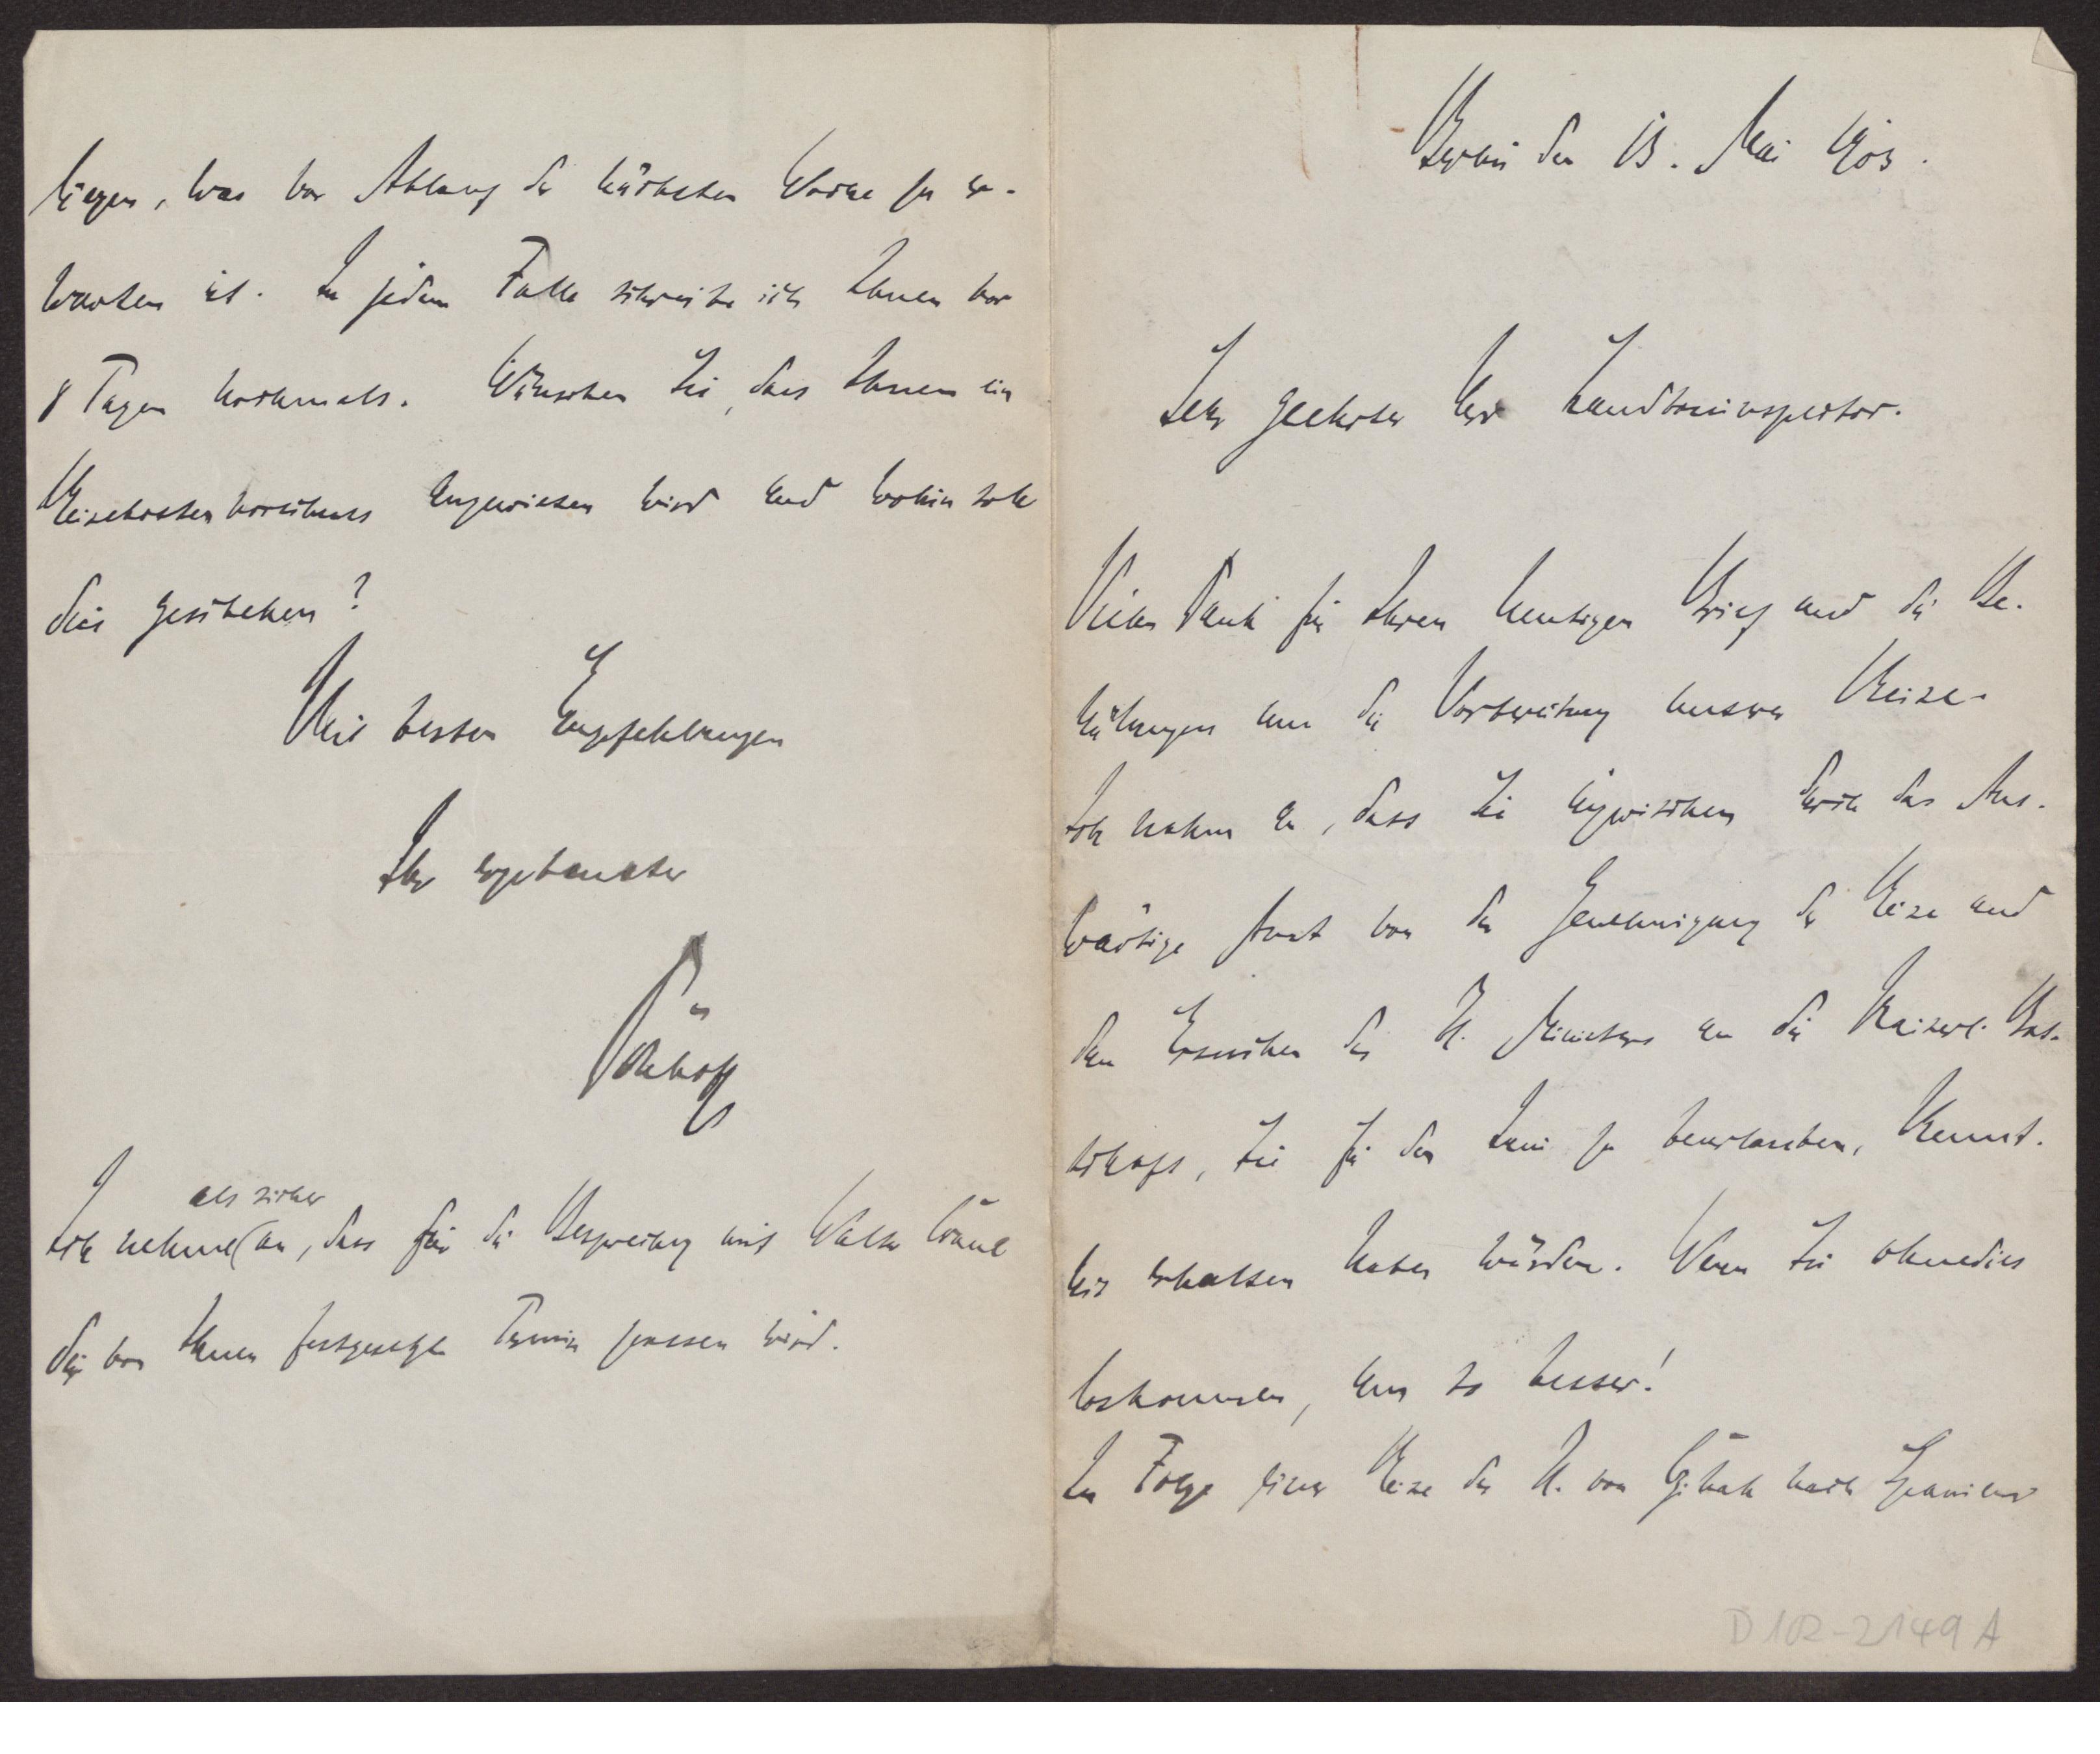 Berlin den 13. Mai 1903.
Sehr geehrter Herr Landbauinspektor.
Vielen Dank für Ihren heutigen Brief und die Be-
mühungen um die Vorbereitung unserer Reise.
Ich nahm an, dass Sie inzwischen durch das Aus-
wärtige Amt von der Genehmigung der Reise und
dem Ersuchen des H. Ministers an die Kaiserl. Bot-
schaft, Sie für den Juni zu beurlauben, Kennt-
nis erhalten haben würden. Wenn Sie ohnedies
loskommen, um so besser!
In Folge einer Reise des H. von nach Spanien
liegen, was vor Ablauf der nächsten Woche zu er-
warten ist. In jedem Falle schreibe ich Ihnen vor
8 Tagen nochmals. Wünschen Sie, dass Ihnen ein
Reisekostenvorschuss angewiesen wird und wohin soll
dies geschehen?
Mit besten Empfehlungen
Ihr ergebenster
Dönhoff
Ich nehme als sicher an, dass für die Besprechung mit Walter Crane
der von Ihnen festgesetzte Termin passen wird.
D 102-2149 A